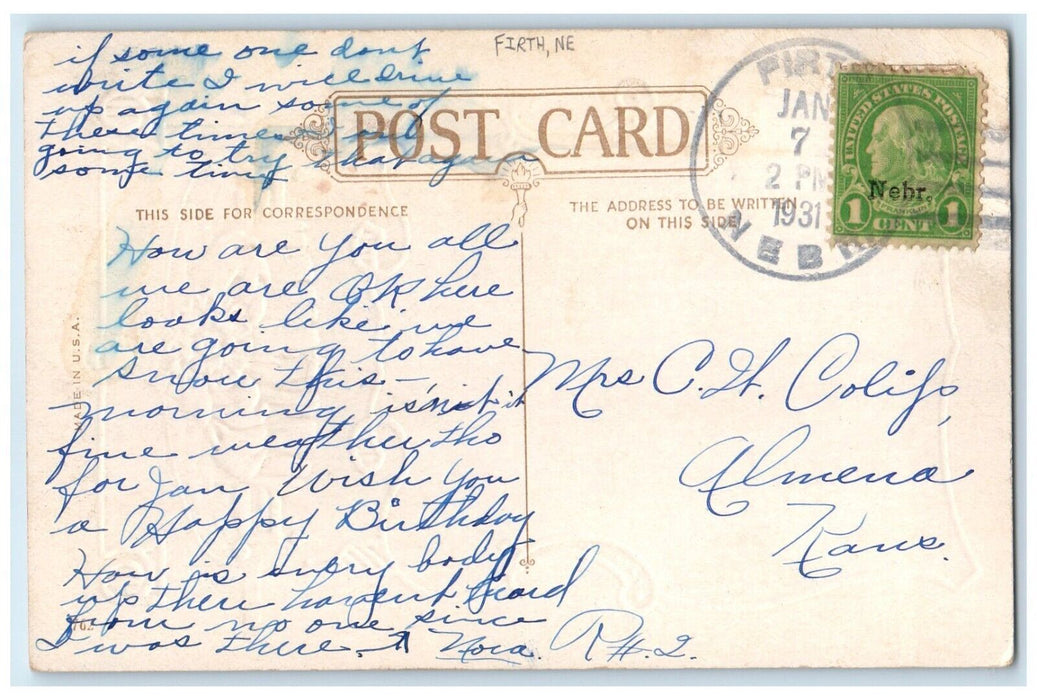 FIRTH, NE
POST CARD
THIS SIDE FOR CORRESPONDENCE
THE ADDRESS TO BE WRITTEN
ON THIS SIDE
MADE IN U.S.A.
FIRTH
JAN
7
2 PM
1931
NEBR
UNITED STATES POSTAGE
Nebr.
1 CENT 1
How are you all
we are OK here
looks like we
are going to have
snow this
morning, isn't it
fine weather tho
for Jan Wish you
a Happy Birthday
How is every body
up there havent heard
from no one since
I was there. Nora.
if some one dont
write I will drive
up again some of
these times I
going to try that again
some time
Mrs C. H.
Almena
Kans.
R#.2.